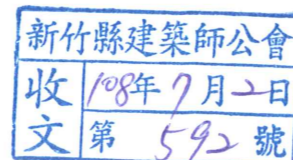 新竹縣建築師公會
收文
108年7月2日
第592號